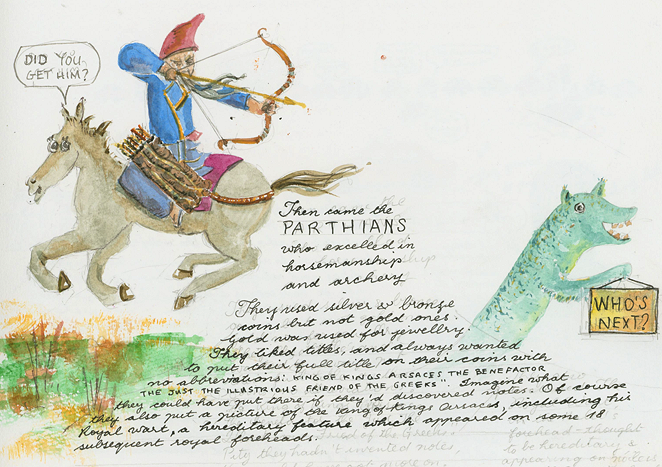 DID YOU
GET HIM?
Then came the
PARTHIANS
who excelled in
horsemanship
and archery
WHO'S
NEXT?
They used silver & bronze
coins but not gold ones.
Gold was used for jewellry.
They liked titles, and always wanted
to put their full title on their coins with
no abbreviations: "KING OF KINGS ARSACES THE BENEFACTOR
THE JUST THE ILLUSTRIOUS FRIEND OF THE GREEKS". Imagine what
they could have put there if they'd discovered notes. Of course
they also put a picture of the King of Kings Arsaces, including his
Royal wart, a hereditary feature which appeared on some 18
subsequent royal foreheads.
forehead - thought
to be hereditary &
appearing on
Pity they hadn't invented notes,